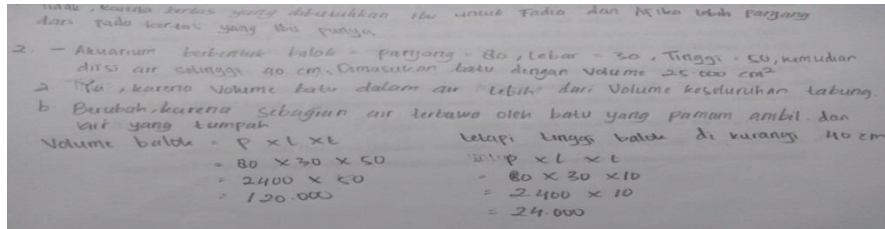 tidak, karena kertas yang dibutuhkan ibu untuk Fadia dan Afika lebih panjang
dari pada kertas yang ibu punya.
2. - Akuarium berbentuk balok = panjang = 80, lebar = 30, Tinggi = 50, kemudian
diisi air setinggi 40 cm. Dimasukan batu dengan Volume 25.000 cm²
a Ya, karena Volume batu dalam air lebih dari Volume keseluruhan tabung.
b Berubah, karena sebagian air terbawa oleh batu yang pamam ambil. dan
air yang tumpah
Volume balok = P x l x t tetapi tinggi balok di kurangi 40 cm
= 80 x 30 x 50 P x l x t
= 2400 x 50 = 80 x 30 x 10
= 120.000 = 2400 x 10
= 24.000